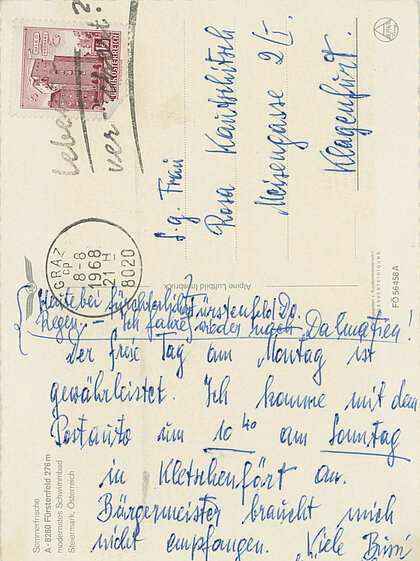 S. g. Frau
Rosa Kautschitsch
Meisengasse 2/I.
Klagenfurt.
GRAZ
8-8
1968
21 H
8020
REPUBLIK ÖSTERREICH
Alpine Luftbild Innsbruck
FÖ 56458 A
Fürstenfeld, Do.
Heute bei fürchterlichstem
Regen. Ich fahre wieder nach Dalmatien!
Der freie Tag am Montag ist
gewährleistet. Ich komme mit dem
Postauto um 10 40 am Sonntag
in Kletschenfört an.
Bürgermeister braucht mich
nicht empfangen. Viele Bussi
Sommerfrische
A - 8280 Fürstenfeld 276m
modernstes Schwimmbad
Steiermark, Österreich